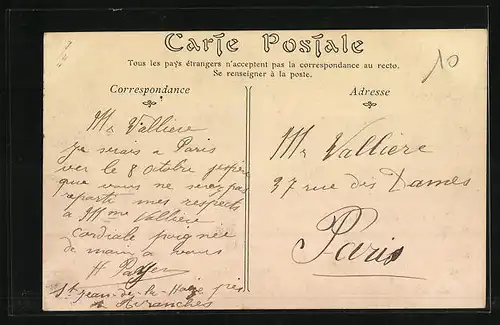 Carte Postale
Tous les pays étrangers n'acceptent pas la correspondance au recto.
Se renseigner à la poste.
10
Correspondance
Mr Valliere
je serais a Paris
ver le 8 Octobre j'espère
que vous ne serez pas
reparti mes respects
a Mme Valliere
Cordiale poignée
de main a vous
H Payen
St Jean-de-la-Haize près
Avranches
Adresse
Mr Valliere
37 rue des Dames
Paris